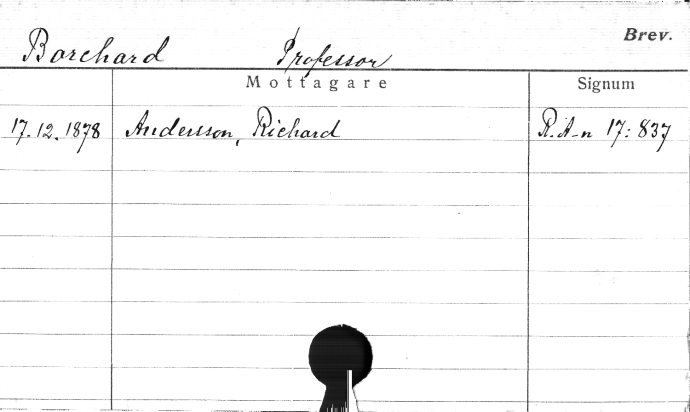 Brev.
Borchard Professor
Mottagare Signum
17.12.1878 Andersson, Richard R.A-n 17:837